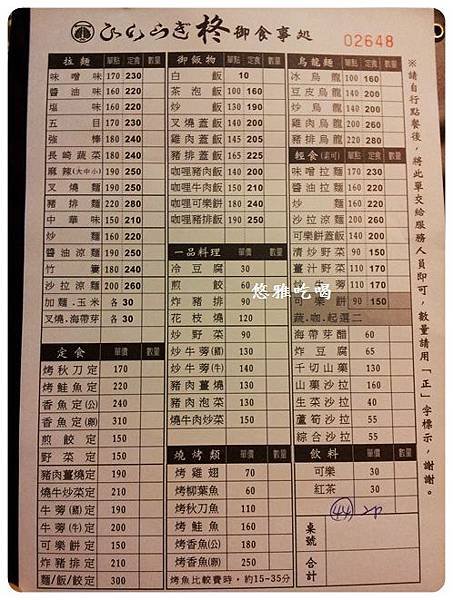 ひいらぎ 柊 御食事処
02648
拉麵 單點 定食 數量
味噌味 170 230
醬油味 160 220
塩味 160 220
五目 180 240
強棒 180 240
長崎蔬菜 180 240
麻辣(大中小) 190 250
叉燒麵 190 250
豬排麵 220 280
中華味 150 210
炒麵 160 220
醬油涼麵 200 260
竹簍 180 240
沙拉涼麵 200 260
加麵.玉米 各30
叉燒.海帶芽 各30
定食 單價 數量
烤秋刀定 170
烤鮭魚定 220
香魚定(公) 240
香魚定(卵) 310
煎餃定 200
野菜定 150
豬肉薑燒定 190
燒牛炒菜定 210
牛蒡(豬)定 190
牛蒡(牛)定 200
可樂餅定 150
炸豬排定 210
麵/飯/餃定 300
御飯物 單點 定食 數量
白飯 10
茶泡飯 100 160
炒飯 130 190
叉燒蓋飯 145 205
雞肉蓋飯 145 205
豬排蓋飯 165 225
咖哩豬肉飯 140 200
咖哩牛肉飯 150 210
咖哩可樂餅 180 240
咖哩豬排飯 190 250
一品料理 單價 數量
冷豆腐 30
煎餃 60
炸豬排 90
花枝燒 120
炒野菜 90
炒牛蒡(豬) 130
炒牛蒡(牛) 140
豬肉薑燒 130
豬肉泡菜 130
燒牛肉炒菜 150
燒烤類 單價 數量
烤雞翅 70
烤柳葉魚 60
烤秋刀魚 110
烤鮭魚 160
烤香魚(公) 180
烤香魚(卵) 250
烤魚比較費時，約15~35分
烏龍麵 單點 定食 數量
冰烏龍 100 160
豆皮烏龍 140 200
炒烏龍 140 200
雞肉烏龍 200 260
豬排烏龍 220 280
輕食(素可) 單點 定食 數量
味噌拉麵 160 220
醬油拉麵 150 210
炒麵 160 220
沙拉涼麵 200 260
可樂餅蓋飯 140 200
清炒野菜 90 150
薑汁野菜 110 170
牛蒡 110 170
可樂餅 90 150
蔬.咖.起選二
海帶芽醋 60
炸豆腐 65
千切山藥 130
山藥沙拉 160
生菜沙拉 40
蘆筍沙拉 55
綜合沙拉 55
飲料 單價 數量
可樂 30
紅茶 30
44
桌號
合計
※請自行點餐後，將此單交給服務人員即可，數量請用「正」字標示，謝謝。
悠雅吃喝